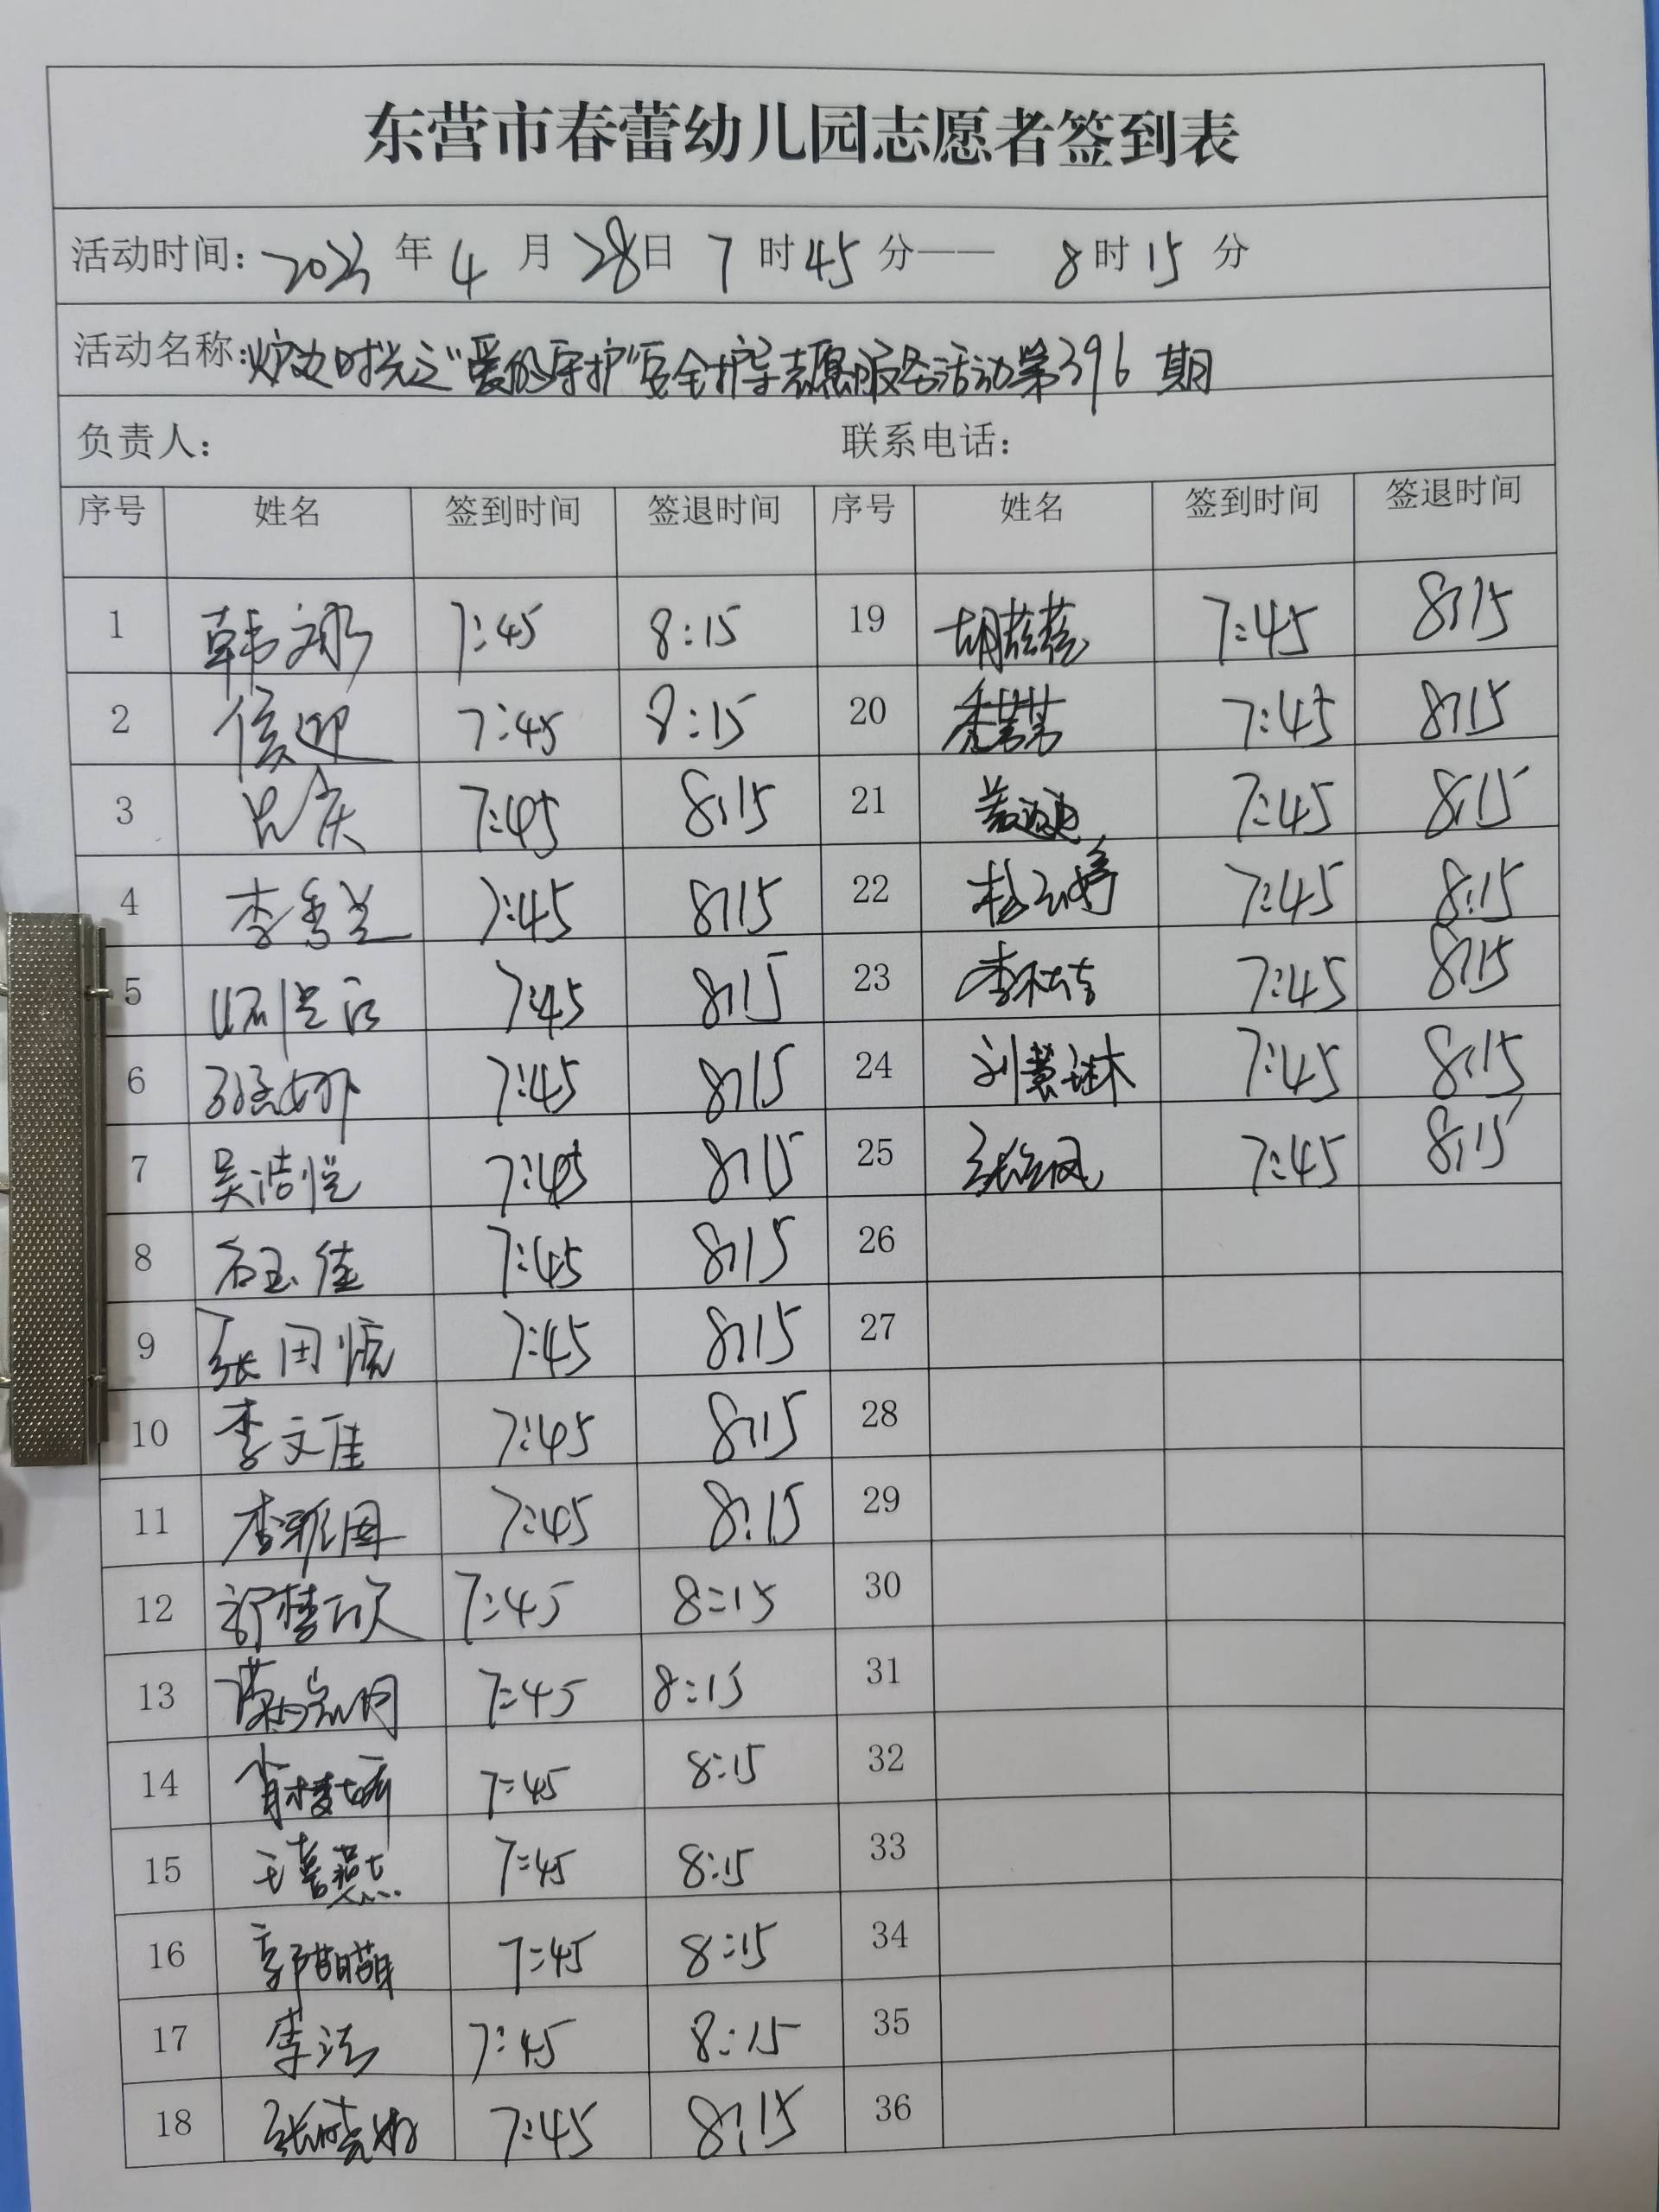 东营市春蕾幼儿园志愿者签到表
活动时间: 2023 年 4 月 28 日 7 时 45 分—— 8 时 15 分
活动名称: 炉边时光之"爱的守护"安全护导志愿服务活动第396 期
负责人: 联系电话:
序号 姓名 签到时间 签退时间 序号 姓名 签到时间 签退时间
1 韩 7:45 8:15 19 胡 7:45 8:15
2 侯迎 7:45 8:15 20 7:45 8:15
3 吕庆 7:45 8:15 21 7:45 8:15
4 李秀兰 7:45 8:15 22 7:45 8:15
5 7:45 8:15 23 李 7:45 8:15
6 孙孟娜 7:45 8:15 24 刘慧琳 7:45 8:15
7 吴浩悦 7:45 8:15 25 张 凤 7:45 8:15
8 石玉佳 7:45 8:15 26
9 张田 7:45 8:15 27
10 李文佳 7:45 8:15 28
11 李雅 7:45 8:15 29
12 楚欣 7:45 8:15 30
13 7:45 8:15 31
14 肖楼妍 7:45 8:15 32
15 王喜燕 7:45 8:15 33
16 郭萌萌 7:45 8:15 34
17 李洁 7:45 8:15 35
18 张晓娜 7:45 8:15 36